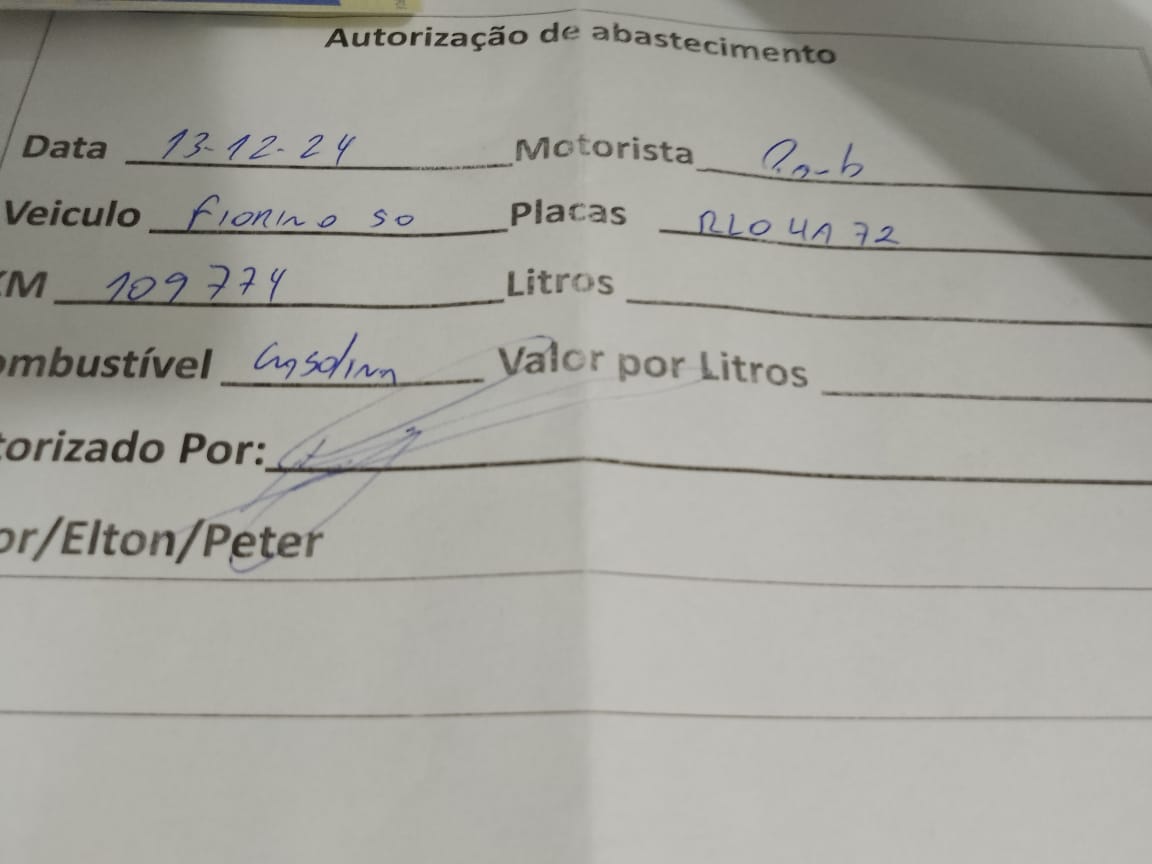 Autorização de abastecimento
Data 13-12-24 Motorista
Veiculo fiorino so Placas RLO4A72
KM 109774 Litros
ombustível Gasolina Valor por Litros
torizado Por:
or/Elton/Peter